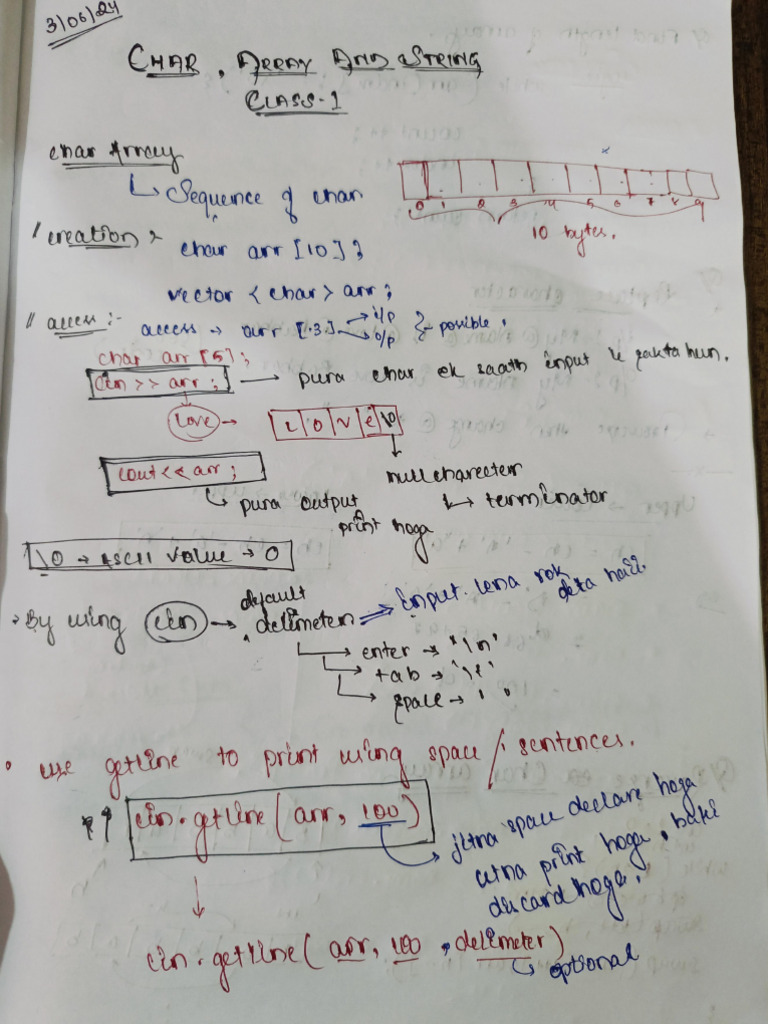 3/06/24
CHAR, ARRAY AND STRING
CLASS-1
char Array
↳ Sequence of char
0 1 2 3 4 5 6 7 8 9
10 bytes.
creation
char arr [10];
vector <char> arr;
// access :-
access → arr [3] → i/p → o/p } possible.
char arr [5];
cin >> arr; → pura char ek saath input le sakta hun.
Love → L O V E \0
null charecter
↳ terminator
cout << arr;
↳ pura output
print hoga
\0 → ASCII value → 0
By using cin → default delimeter ⇒ input lena rok deta hai.
→ enter → '\n'
→ tab → '\t'
→ space → ' '
• use getline to print using space / sentences.
cin.getline (arr, 100)
jitna space declare hoga
utna print hoga, baki
discard hoga.
cin.getline (arr, 100, delimeter)
↳ optional